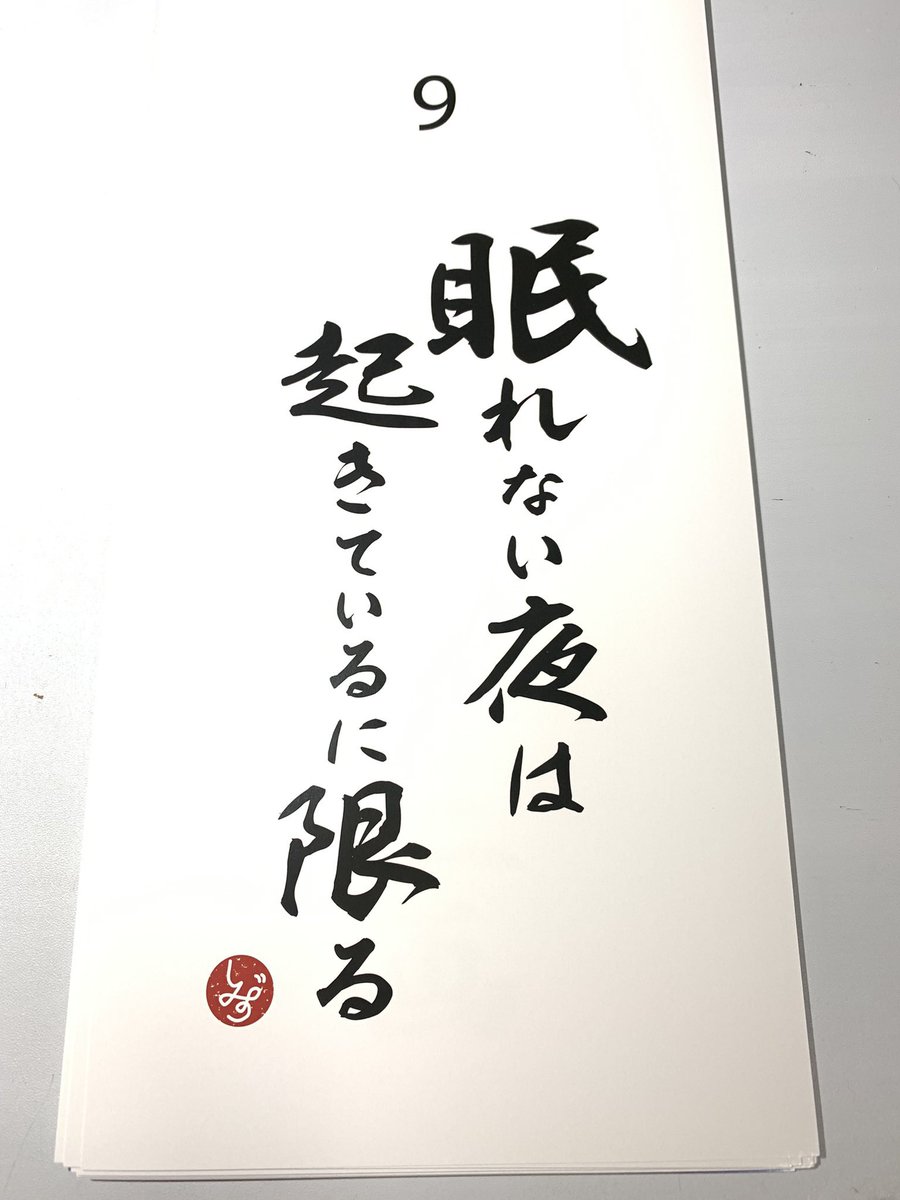 9
眠れない夜は
起きているに限る
しみず